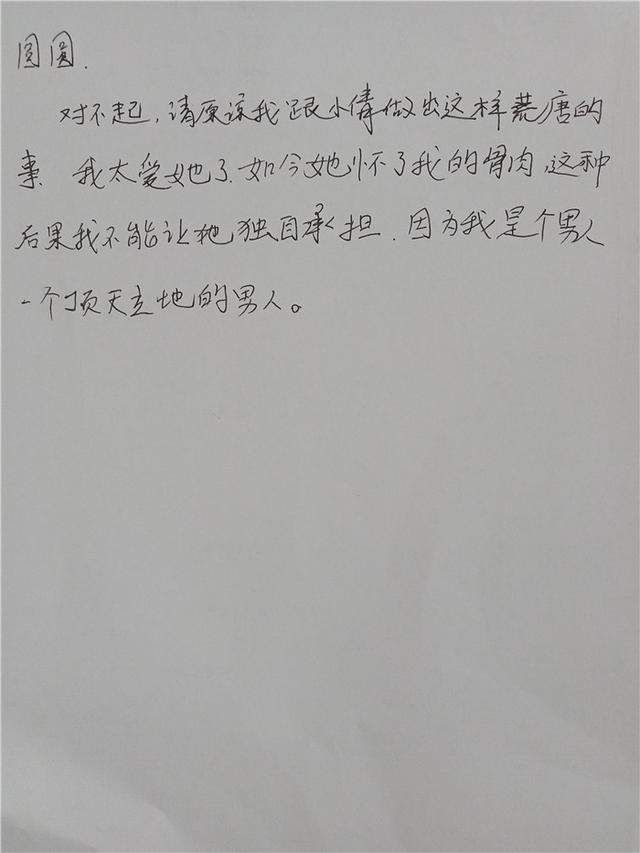 圆圆.
对不起，请原谅我跟小倩做出这样荒唐的
事 我太爱她了.如今她怀了我的骨肉,这种
后果我不能让她独自承担.因为我是个男人
一个顶天立地的男人。